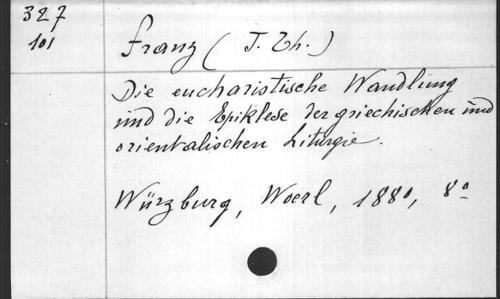 327
101
Franz (J. Th.)
Die eucharistische Wandlung
und die Epiklese der griechischen und
orientalischen Liturgie.
Würzburg, Woerl, 1880, 8º